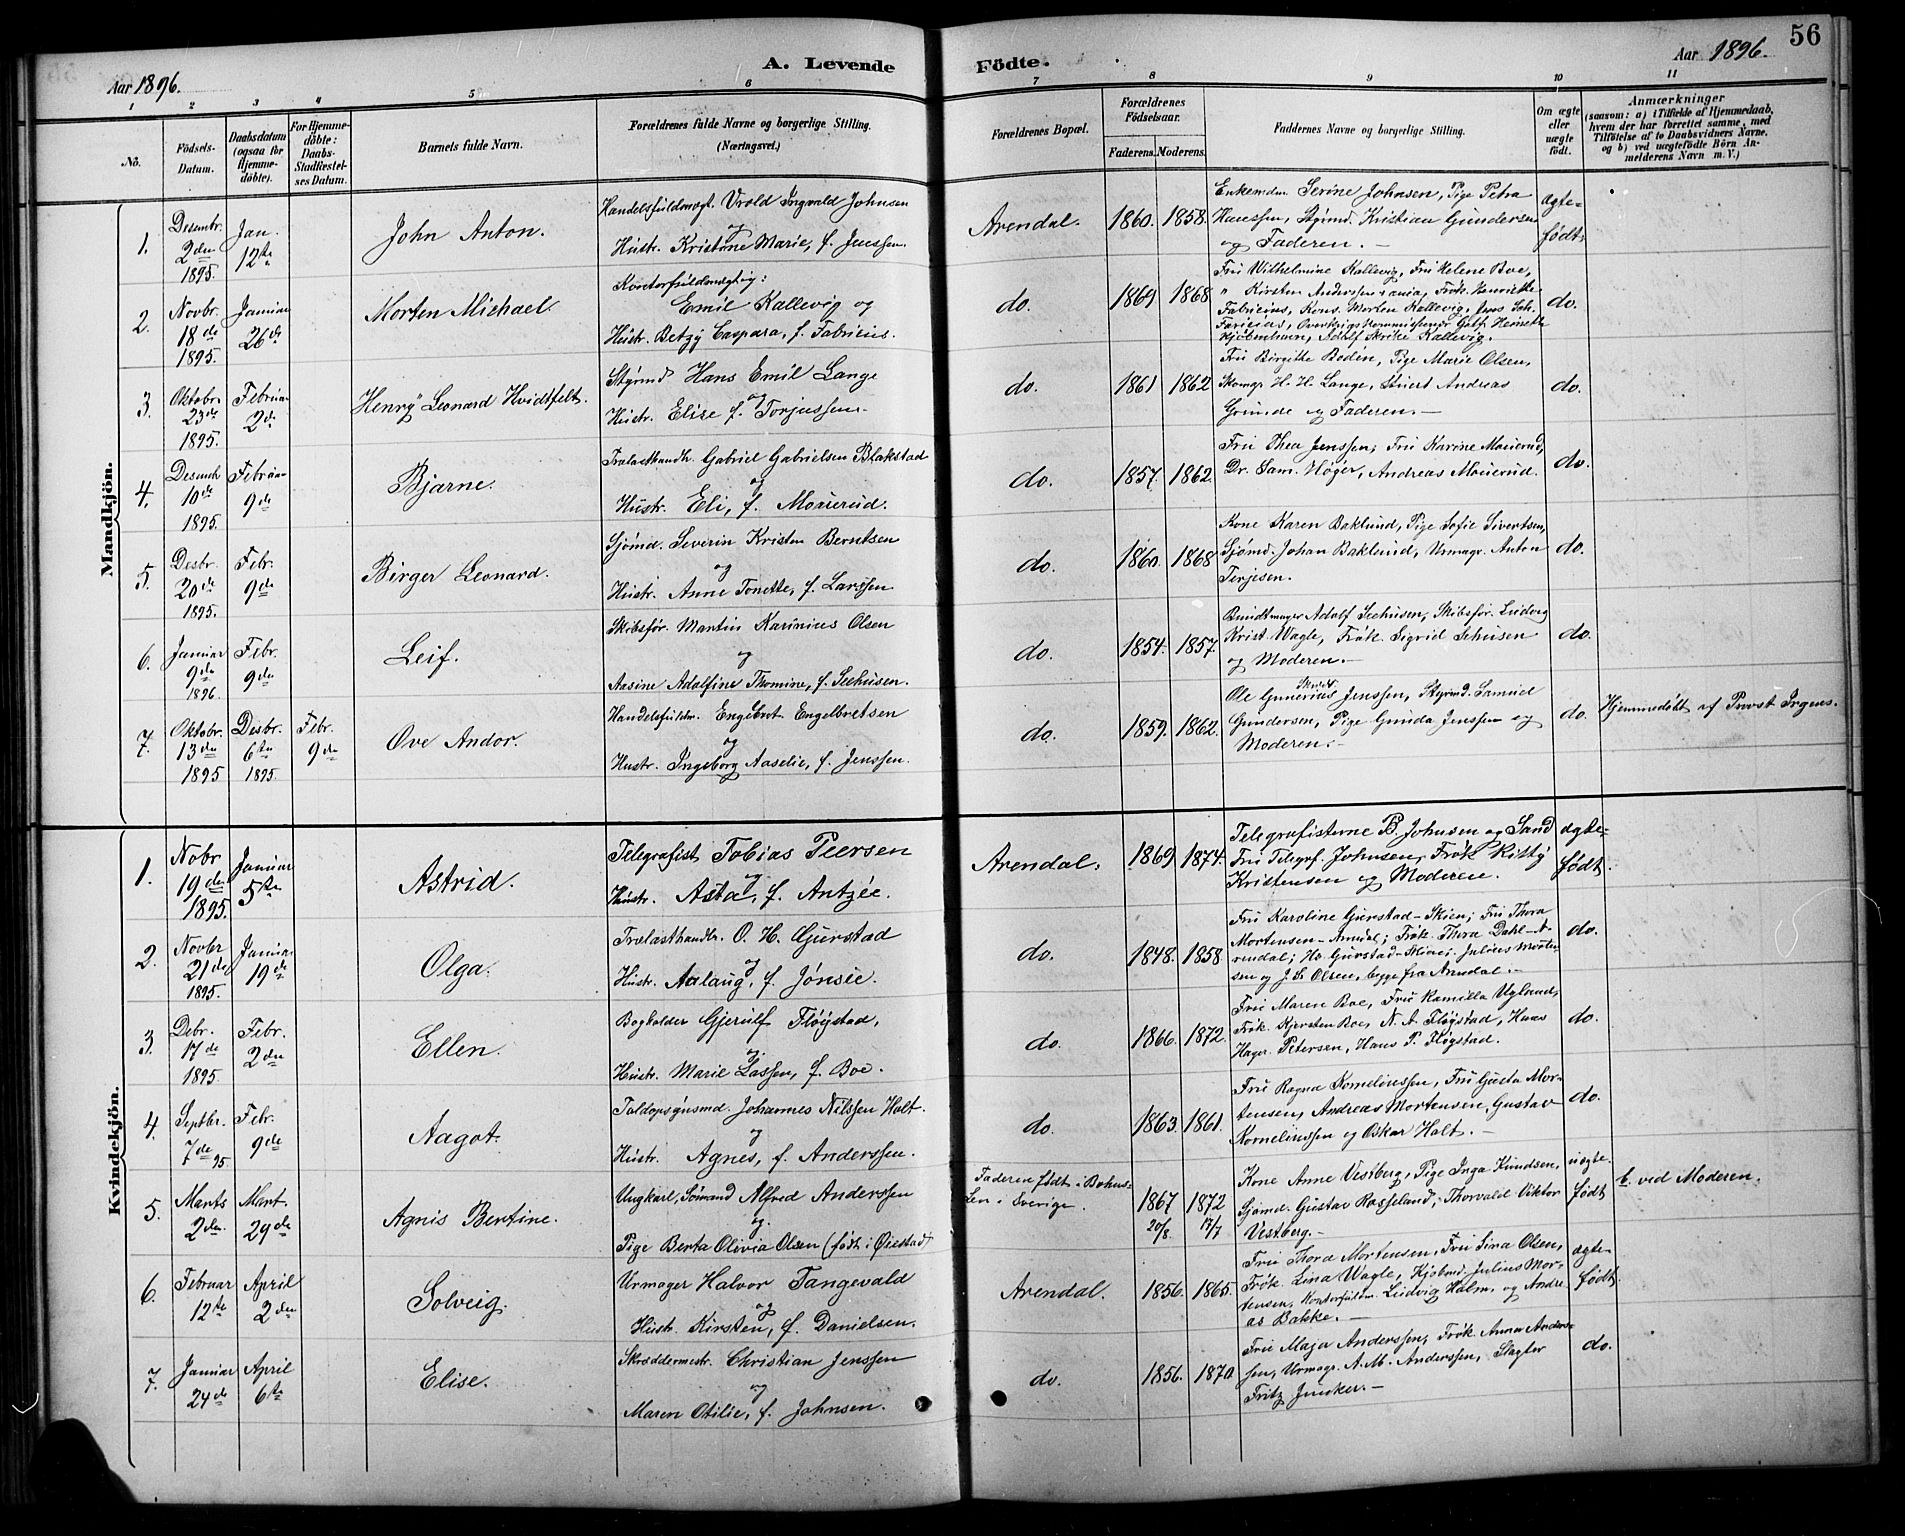 56
Aar 1896.
A. Levende Födte.
Aar 1896.
1 2 3 4 5 6 7 8 9 10 11
No.
Födsels-Datum.
Daabsdatum (ogsaa for Hjemmedöbte).
For Hjemmedöbte: Daabs-Stadfæstelses Datum.
Barnets fulde Navn.
Forældrenes fulde Navne og borgerlige Stilling. (Næringsvei.)
Forældrenes Bopæl.
Forældrenes Födselsaar.
Faderens. Moderens.
Faddernes Navne og borgerlige Stilling.
Om ægte eller uægte födt.
Anmærkninger
(saasom: a) i Tilfælde af Hjemmedaab, hvem der har forrettet samme, med Tilföielse af to Daabsvidners Navne, og b) ved uægtefödte Börn Anmelderens Navn m. V.)
Mandkjön.
1. Desembr. 2den 1895. Jan. 12te John Anton.
Handelsfuldmægt. Vrold Ingvald Johnsen
og
Hustr. Kristine Marie, f. Jenssen.
Arendal. 1860. 1858.
Enkemdm Serine Johnsen, Pige Petra
Hanssen, Styrmd. Kristian Gundersen
og Faderen.—
ægte-født.
2. Novbr. 18de 1895. Januar 26de Morten Michael.
Kontorfuldmægtig:
Emil Kallevig og
Hustr. Betzy Caspara, f. Fabricius.
do. 1869 1868.
Fru Wilhelmine Kallevig, Fru Helene Boe,
" Kirsten Anderssen, Frøk. Henriette
Fabricius, Kons. Morten Kallevig, Jens Joh.
Kjøbenhavn, Adolf Kallevig.
do.
3. Oktobr. 23de 1895. Februar 2de Henry Leonard Hvidtfelt.
Styrmd Hans Emil Lange
og
Hustr. Elise f. Torjussen.
do. 1861 1862
Fru Birgitte Bodin, Pige Marie Olsen,
Skomgr H. H. Lange, Stuert Andreas
Grunde og Faderen.—
do.
4. Desembr 10de 1895. Februar 9de Bjarne.
Trælasthandl. Gabriel Gabrielsen Blakstad
og
Hustr. Eli, f. Mouerud.
do. 1857. 1862.
Fru Thea Jenssen, Fru Karine Mouerud,
Dr. Sam. Høyer, Andreas Mouerud.
do.
5. Desbr. 20de 1895. Febr. 9de Birger Leonard.
Sjømd. Severin Kristen Berntsen
og
Hustr. Anne Tonette, f. Larssen
do. 1860. 1868
Kone Karen Baklund, Pige Sofie Sivertsen,
Sjømd. Johan Baklund, Urmagr. Anton
Terjesen.
do.
6. Januar 9de 1896. Febr. 9de Leif.
Skibsfør. Martin Karinius Olsen
og
Aasine Adolfine Thomine, f. Seehusen.
do. 1854. 1857.
Bundtmager Adolf Seehusen, Skibsfør. Ludvig
Krist Wagle, Frøk. Sigrid Sehusen
og Moderen.—
do.
7. Oktobr. 13de 1895 Desbr. 6te 1895. Febr. 9de Ove Andor.
Handelsfuldm. Engebret Engelbretsen
og
Hustr. Ingeborg Aaselie, f. Jenssen.
do. 1859. 1862.
Ole Gunerius Jenssen, Styrmd. Samuel
Gundersen, Pige Gunda Jenssen og
Moderen.—
do. Hjemmedøbt af Provst Irgens.
Kvindekjön.
1. Nobr 19de 1895. Januar 5te Astrid.
Telegrafist Tobias Peersen
og
Hustr. Asta, f. Antzée.
Arendal. 1869 1874.
Telegrafisterne B. Johnsen og Sand
Fru Telegraf. Johnsen, Frøk Kitty
Kristensen og Moderen.
ægte-født.
2. Novbr 21de 1895. Januar 19de Olga.
Trælasthandlr. O. H. Gjurstad
og
Hustr. Aslaug, f. Jonsie.
do. 1848. 1858.
Fru Karoline Gurstad-Skien; Fru Thora
Mortensen-Arendal; Frøk. Thora Dahl-A-
rendal; Ho. Gurstad-Skien; Julius Morten-
sen og J. S. Olsen, begge fra Arendal.—
do.
3. Debr. 17de 1895. Febr. 2den Ellen.
Bogholder Gjerulf Fløystad,
og
Hustr. Marie Lassen, f. Boe.
do. 1866. 1872.
Fru Maren Boe, Fru Kamilla Ugland,
Frøk. Kjersten Boe, N. A. Fløystad, Hans
Hager. Petersen, Hans P. Fløgstad.
do.
4. Septbr. 7de 95. Febr. 9de Aagot.
Toldopsynsmd. Johannes Nilssen Holt.
og
Hustr. Agnes, f. Anderssen.
do. 1863. 1861.
Fru Ragna Kornelinssen, Fru Gusta Mor-
tensen, Andreas Mortensen, Gustav
Kornelinssen og Oskar Holt.—
do.
5. Marts 2den. Mart. 29de Agnis Bertine.
Ungkarl, Sømand Alfred Anderssen
og
Pige Berta Olivia Olsen (født i Øiestad)
Faderen født i Bohus-
Len i Sverige.
1867 20/8. 1872 17/7
Kone Anne Vestberg, Pige Inga Knudsen,
Sjømd. Gustav Rosseland, Thorvald Viktor
Vestberg.—
uægte-født b. ved Moderen.
6. Februar 12te April 2den Solveig.
Urmager Halvor Tangevald
og
Hustr. Kirsten, f. Danielsen.
Arendal. 1856. 1865.
Fru Thora Mortensen, Fru Lina Olsen,
Frøk. Lina Wagle, Kjøbmd. Julius Mor-
tensen, Kontorfuldm. Ludvig Holm, og Andre
as Bakke.—
ægte-født.
7. Januar 24de April 6te Elise.
Skræddermestr. Christian Jenssen
og
Maren Otilie, f. Johnsen.
do. 1856. 1870.
Fru Maja Anderssen, Frøk. Anna Anders-
sen, Urmagr. A. M. Anderssen, Slagter
Fritz Juncker.—
do.